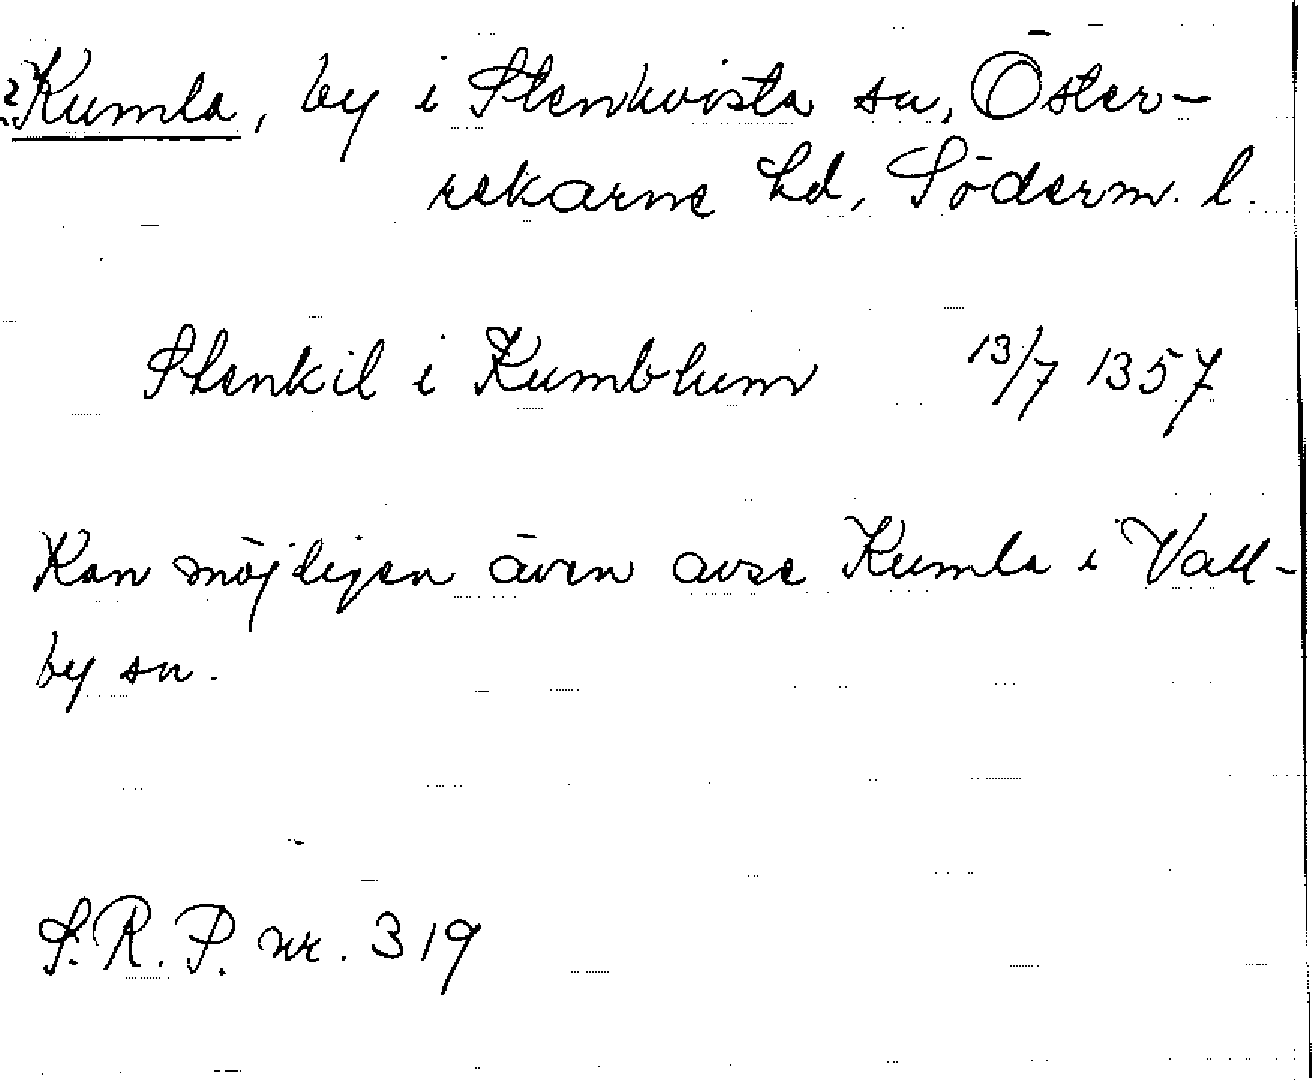 ?Kumla, by i Stenkvista sn, Öster-
rekarne hd, Söderm. l.
Stenkil i Kumblum 13/7 1357
Kan möjligen även avse Kumla i Vall-
by sn.
S.R.P. nr. 319